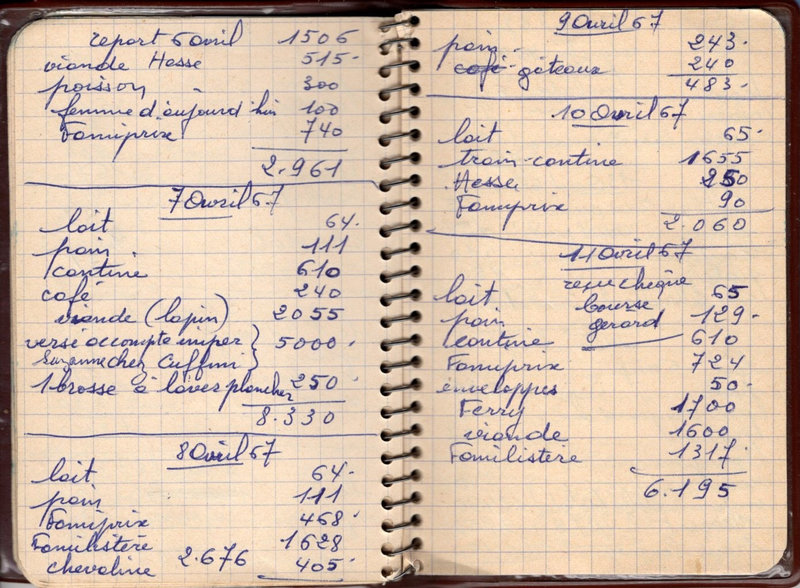 report 6 avril 1506
viande Hesse 515
poisson 300
femme d'aujourd'hui 100
Famiprix 740
2.961
7 Avril 67
lait 64
pain 111
cantine 610
café 240
viande (lapin) 2055
versé accompte imper } 5000
Suzanne chez Cuffini }
1 brosse à laver plancher 250
8.330
8 Avril 67
lait 64
pain 111
Famiprix 468
Familistère 1628
chevaline 2.676 405
9 Avril 67
pain 243
café gâteaux 240
483
10 Avril 67
lait 65
train-cantine 1655
Hesse 250
Famiprix 90
2.060
11 Avril 67
reçu chèque
bourse
gerard
lait 65
pain 129
cantine 610
Famiprix 724
enveloppes 50
Ferry 1700
viande 1600
Familistère 1317
6.195